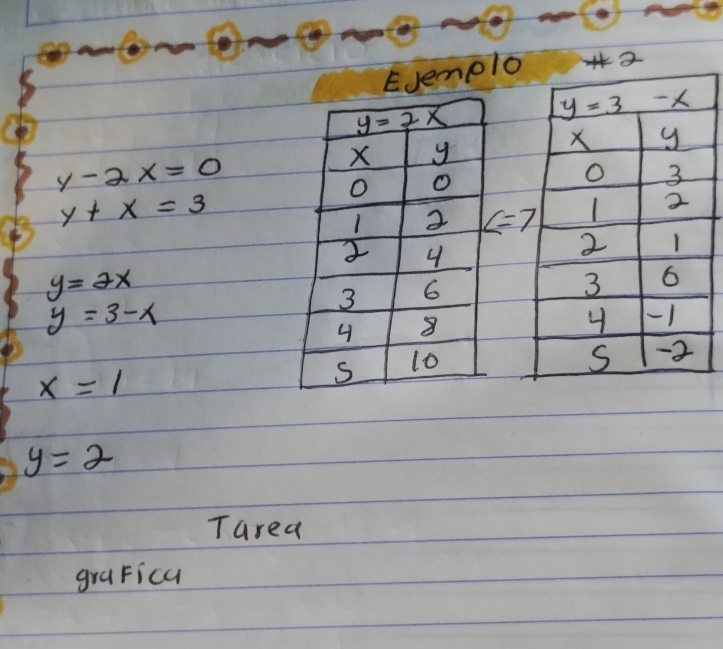 Ejemplo #2
y - 2x = 0
y + x = 3
y = 2x
y = 3 - x
x = 1
y = 2
y = 2x
x y
0 0
1 2
2 4
3 6
4 8
5 10
<=>
y = 3 - x
x y
0 3
1 2
2 1
3 0
4 -1
5 -2
Tarea
grafica